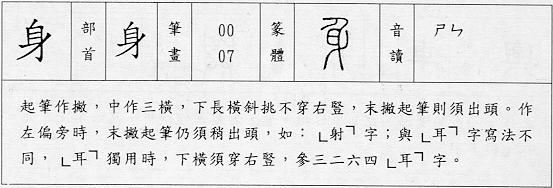 身 部首 身 筆畫 00 07 篆體 音讀 ㄕㄣ
起筆作撇，中作三橫，下長橫斜挑不穿右豎，末撇起筆則須出頭。作
左偏旁時，末撇起筆仍須稍出頭，如：「射」字；與「耳」字寫法不
同，「耳」獨用時，下橫須穿右豎，參三二六四「耳」字。